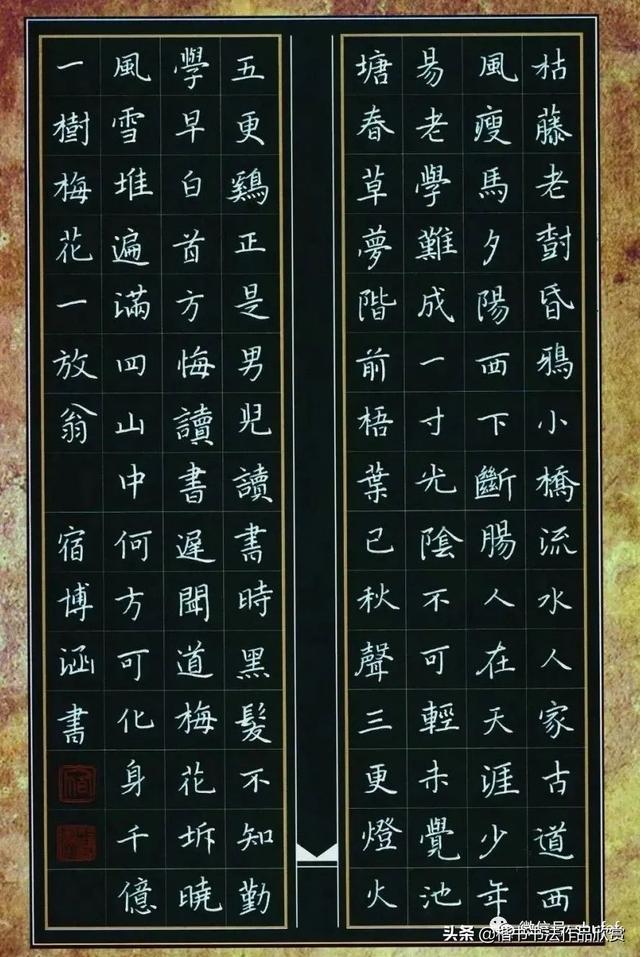 枯藤老樹昏鴉小橋流水人家古道西
風瘦馬夕陽西下斷腸人在天涯少年
易老學難成一寸光陰不可輕未覺池
塘春草夢階前梧葉已秋聲三更燈火
五更鷄正是男兒讀書時黑髮不知勤
學早白首方悔讀書遲聞道梅花坼曉
風雪堆遍滿四山中何方可化身千億
一樹梅花一放翁 宿博涵書
头条 @楷书书法作品欣赏